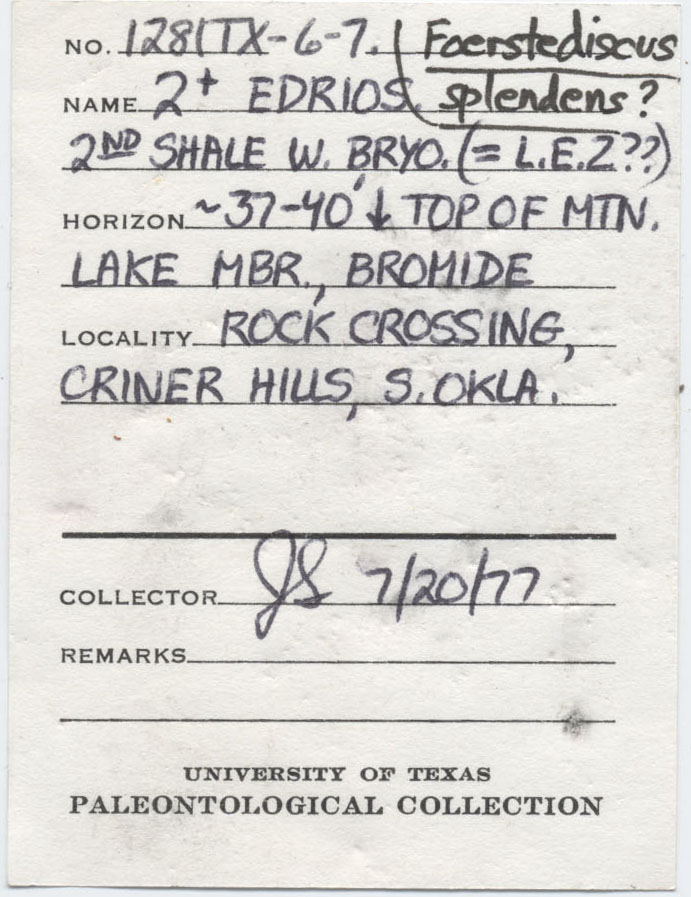 NO. 1281TX-6-7. (Foerstediscus
NAME 2+ EDRIOS. splendens?
2ND SHALE W. BRYO. (= L.E.Z??)
HORIZON ~37-40' ↓ TOP OF MTN.
LAKE MBR., BROMIDE
LOCALITY ROCK CROSSING,
CRINER HILLS, S. OKLA.
COLLECTOR JS 7/20/77
REMARKS
UNIVERSITY OF TEXAS
PALEONTOLOGICAL COLLECTION